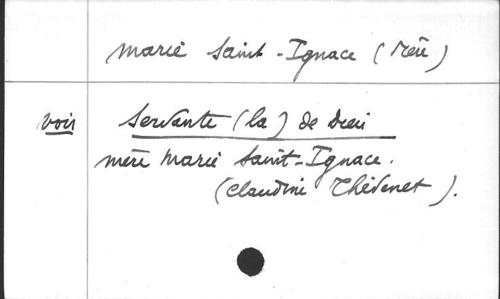 Marie Saint-Ignace (Mère)
voir Servante (la) de Dieu
mère Marie Saint-Ignace.
(Claudine Thévenet).